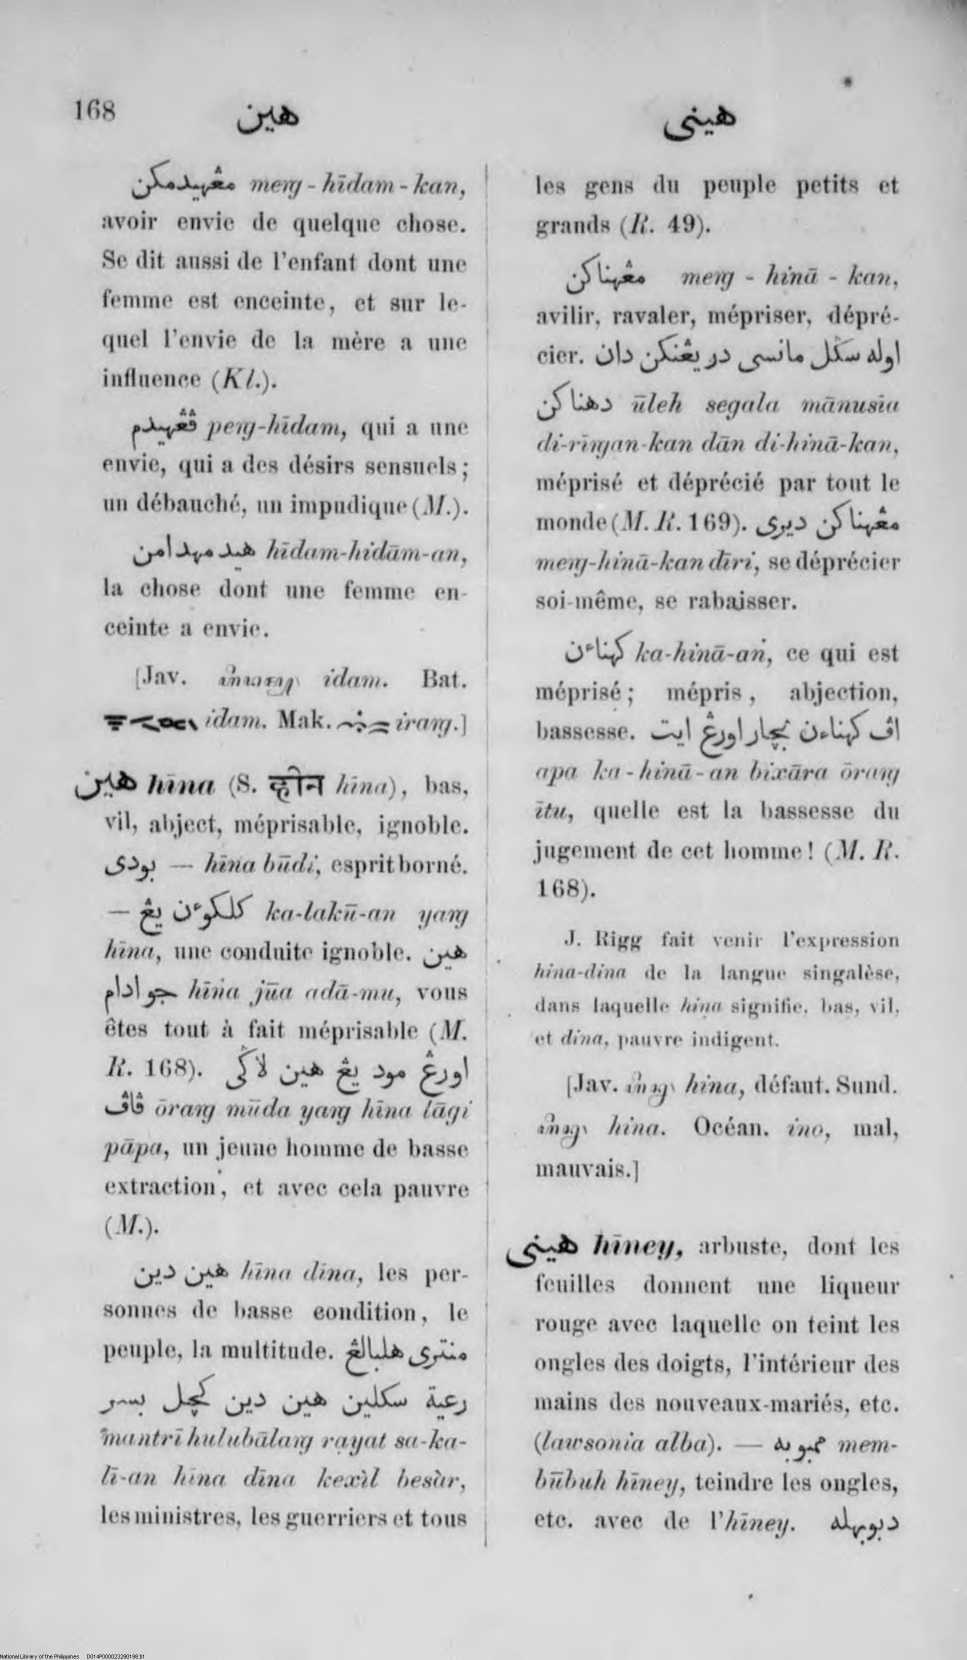 168
هين
هيني
مڠهيدمكن meng-hīdam-kan,
avoir envie de quelque chose.
Se dit aussi de l'enfant dont une
femme est enceinte, et sur le-
quel l'envie de la mère a une
influence (Kl.).
ڤڠهيدم peng-hīdam, qui a une
envie, qui a des désirs sensuels;
un débauché, un impudique (M.).
هيد مهدامن hīdam-hidām-an,
la chose dont une femme en-
ceinte a envie.
[Jav. idam. Bat.
idam. Mak. irang.]
هين hīna (S. हीन hīna), bas,
vil, abject, méprisable, ignoble.
بودى — hīna būdi, esprit borné.
— كلكوءن يڠ ka-lakū-an yang
hīna, une conduite ignoble. هين
جو ادام hīna jūa adā-mu, vous
êtes tout à fait méprisable (M.
R. 168). اورڠ مود يڠ هين لاݢى
ڤاڤ ōrang mūda yang hīna lāgi
pāpa, un jeune homme de basse
extraction, et avec cela pauvre
(M.).
هين دين hīna dīna, les per-
sonnes de basse condition, le
peuple, la multitude. منترى هلبالڠ
رعية سكلين هين دين كچل بسر
mantrī hulubālang rayat sa-ka-
lī-an hīna dīna kexìl besàr,
les ministres, les guerriers et tous
les gens du peuple petits et
grands (R. 49).
مڠهناكن meng-hinā-kan,
avilir, ravaler, mépriser, dépré-
cier. اوله سݢل مانسى دريڠنكن دان
دهناكن ūleh segala mānusīa
di-rīngan-kan dān di-hinā-kan,
méprisé et déprécié par tout le
monde (M. R. 169). مڠهناكن ديرى
meng-hinā-kan dīri, se déprécier
soi-même, se rabaisser.
كهناءن ka-hinā-an, ce qui est
méprisé; mépris, abjection,
bassesse. اڤ كهناءن بچار اورڠ ايت
apa ka-hinā-an bixāra ōrang
ītu, quelle est la bassesse du
jugement de cet homme! (M. R.
168).
J. Rigg fait venir l'expression
hina-dina de la langue singalèse,
dans laquelle hina signifie, bas, vil,
et dina, pauvre indigent.
[Jav. hina, défaut. Sund.
hina. Océan. ino, mal,
mauvais.]
هيني hīney, arbuste, dont les
feuilles donnent une liqueur
rouge avec laquelle on teint les
ongles des doigts, l'intérieur des
mains des nouveaux-mariés, etc.
(lawsonia alba). — ممبوبه mem-
būbuh hīney, teindre les ongles,
etc. avec de l'hīney. دبوبهله
National Library of the Philippines